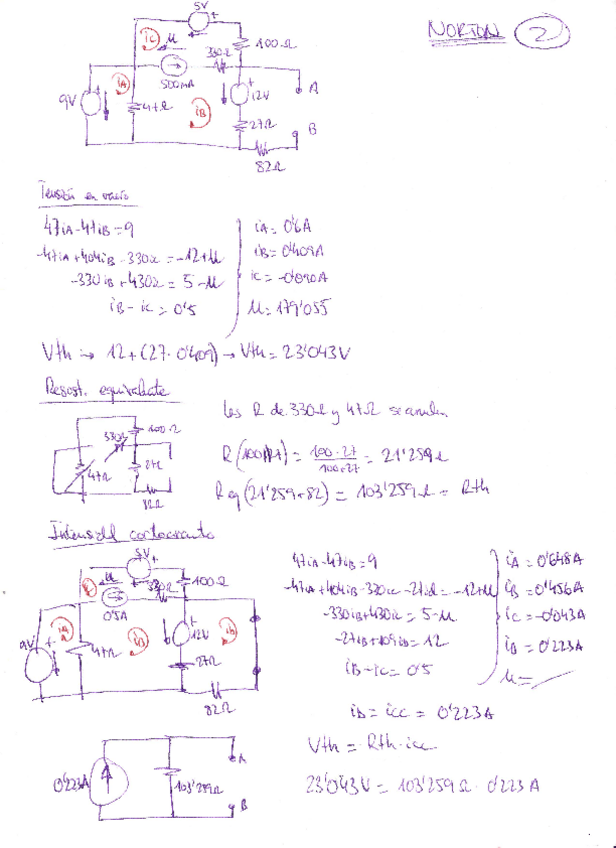 NORTON 2
5V
ic u
100Ω
330Ω
500mA
iA
A
9V
47Ω
iB
12V
27Ω
B
82Ω
Tensión en vacío
47iA-47iB=9
-47iA+404iB-330ic=-12+u
-330iB+430ic=5-u
iB-ic=0'5
iA=0'6A
iB=0'409A
ic=-0'090A
u=179'055
Vth → 12+(27·0'409) → Vth=23'043V
Resist. equivalente
Las R de 330Ω y 47Ω se anulan
100Ω
330Ω
27Ω
47Ω
82Ω
R(100//27)=100·27/100+27=21'259Ω
Req(21'259+82)=103'259Ω=Rth
Intensidad cortocircuito
5V
u
330Ω
100Ω
0'5A
iA
iB
12V
9V
47Ω
27Ω
82Ω
47iA-47iB=9
-47iA+404iB-330ic-27iD=-12+u
-330iB+430ic=5-u
-27iB+109iD=12
iB-ic=0'5
iA=0'648A
iB=0'456A
ic=-0'043A
iD=0'223A
u=
iD=icc=0'223A
Vth=Rth·icc
23'043V=103'259Ω·0'223A
0'223A
103'259Ω
A
B